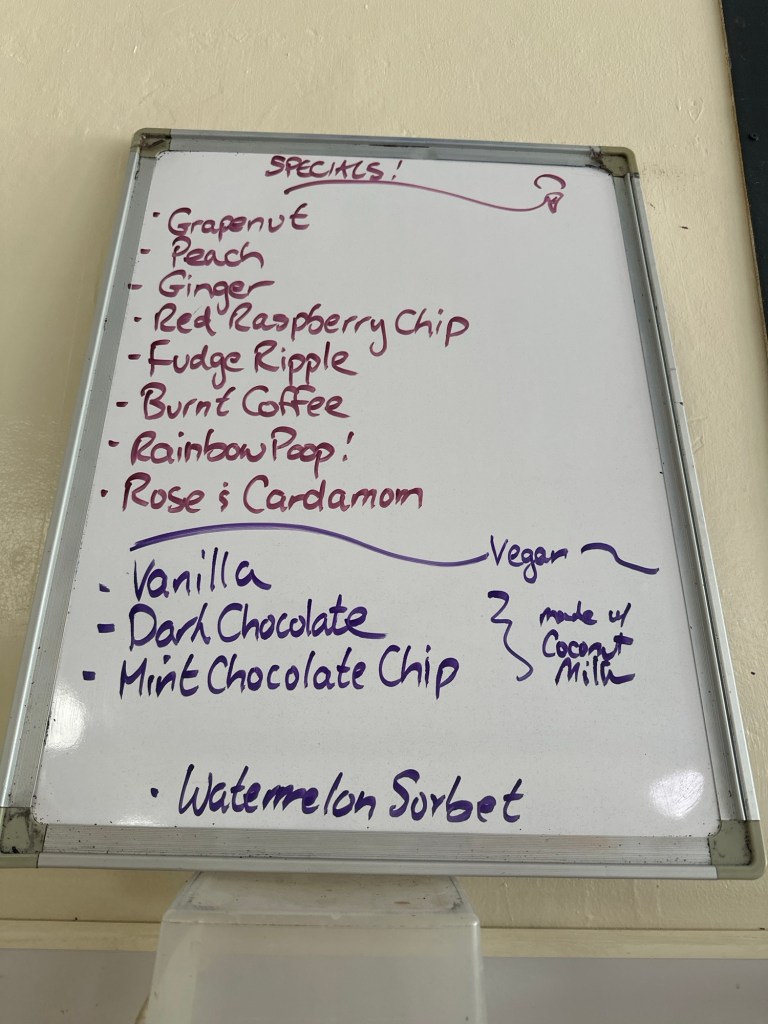 SPECIALS!
· Grapenut
- Peach
- Ginger
· Red Raspberry Chip
- Fudge Ripple
- Burnt Coffee
- Rainbow Poop!
· Rose & Cardamom
Vegan
- Vanilla
- Dark Chocolate
- Mint Chocolate Chip
made w/
Coconut
Milk
· Watermelon Sorbet